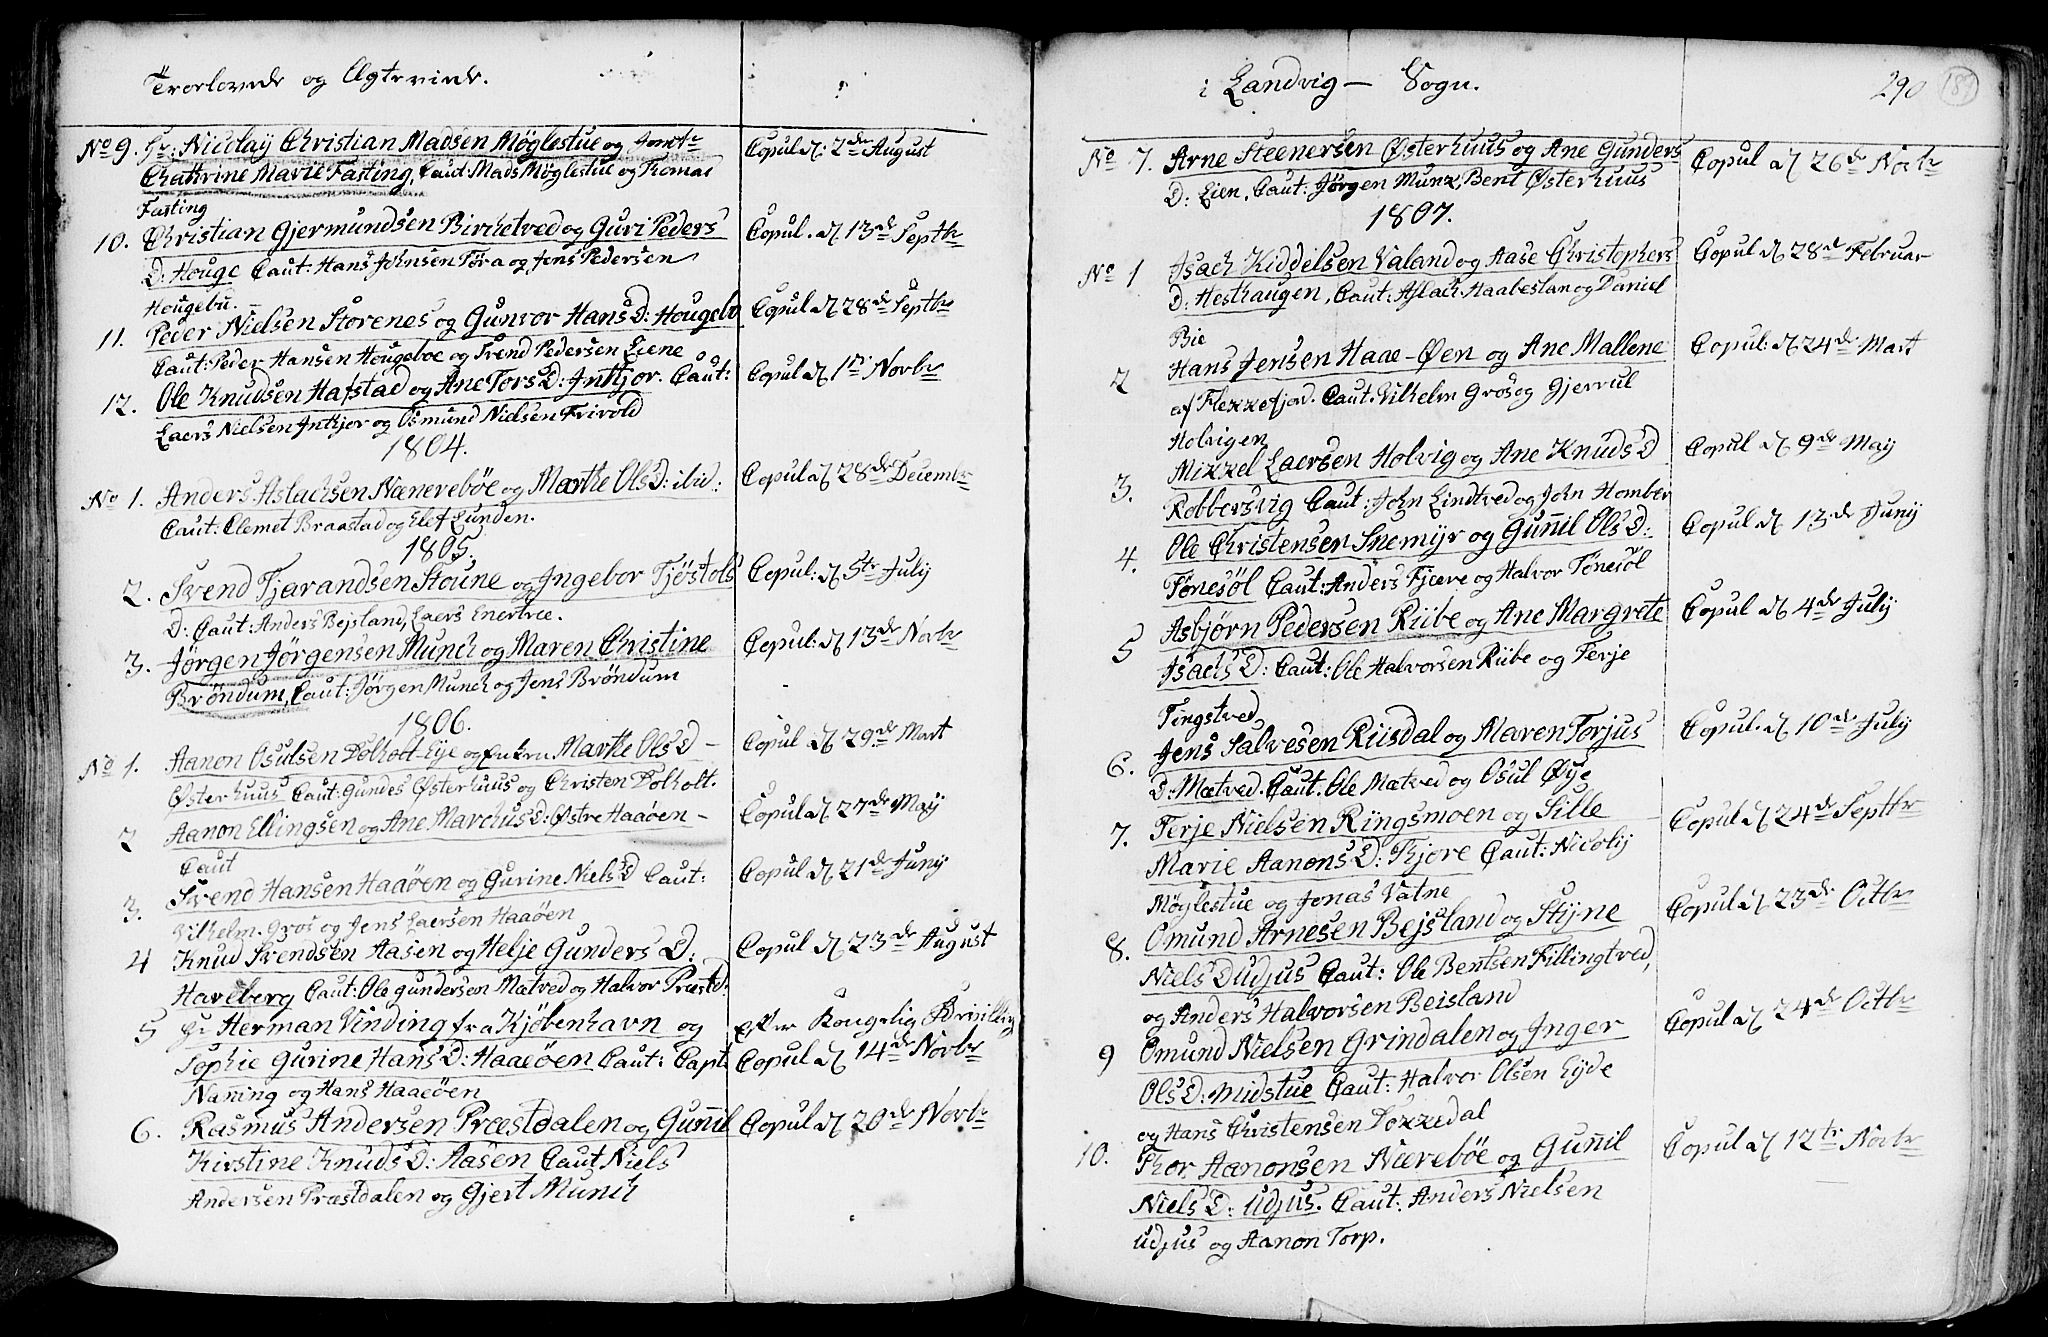 Trorlovede og Ægtevirde.
No 9. Sr: Nicolaÿ Christian Madsen Möglestue og Jomfr
Chathrine Marie Fasting, Caut: Mads Möglestue og Tomas
Fasting
Copul d. 2de August
10. Christian Gjermundsen Birketved og Guri Peders
D: Houge Caut: Hans Johnsen Töra og Jens Pedersen
Hougebu.
Copul. d 13de Septbr
11. Peder Nielsen Störenes og Gunvor Hans D: Hougebo
Caut: Peder Hansen Hougeboe og Svend Pedersen Eiene
Copul d 28de Septbr
12. Ole Knudsen Hafstad og Ane Tors D: Inthjor. Caut:
Laers Nielsen Inthjor og Osmund Nielsen Frivold
Copul d 1ste Novbr
1804.
No 1. Anders Aslachsen Nænereböe og Marthe Ols D: ibid:
Caut: Clemet Braastad og Elef Lunden.
Copul d 28de Decembr
1805.
2. Svend Tjarandsen Stoune og Ingebor Tjöstols
D: Caut: Anders Bejsland, Laers Enertree.
Copul: d 5te July
3. Jörgen Jörgensen Munch og Maren Christine
Bröndum, Caut: Jörgen Munch og Jens Bröndum
Copul: d 13de Novbr
1806.
No 1. Aanon Osulsen Dolholt-Eye og Enken Marthe Ols D
Østerhuus Caut: Gundes Østerhuus og Christen Dolholt.
Copul d 29de Mart
2 Aanon Ellingsen og Ane Marchus D: Østre Haaöen
Caut
Copul d 27de Maÿ
3. Svend Hansen Haaöen og Gurine Niels D Caut:
Vilhelm Gros og Jens Laersen Haaöen
Copul d 21de Juny
4 Knud Svendsen Aasen og Helje Gunders D:
Hareberg Caut: Ole Gundersen Mætved og Halvor Præstd:
Copul d 23de August
5 Hr Herman Vinding fra Kjöbenhavn og
Sophie Gurine Hans D: Haaeöen Caut: Capt
Nanning og Hans Haaeöen
efter Kongelig Brivilleg
Copul d 14de Novbr
6. Rasmus Andersen Præstdalen og Gunnil
Kirstine Knuds D: Aasen Caut Niels
Andersen Præstdalen og Gjert Munch
Copul d 20de Novbr
i Landvig Sogn.
290
189
No 7. Arne Steenersen Østerhuus og Ane Gunders
D: Eien, Caut: Jørgen Munk, Bent Østerhuus
Copul d 26de Novbr
1807.
No 1 Isach Kiddelsen Valand og Aase Christophers
D: Hesthaugen, Caut: Aslach Haabestan og Daniel
Bie
Copul d 28de Februar
2 Hans Jensen Haae-Øen og Ane Mallene
af Flekkefjord. Caut. Vilhelm Gros og Gjerrul
Holvigen
Copul: d 24de Mart
3. Mikkel Laersen Holvig og Ane Knuds D
Robbersvig Caut: John Lindtved og John Homber
Copul d 9de May
4. Ole Christensen Snemyr og Gunnil Ols D:
Tönesöl Caut: Anders Fjære og Halvor Tönesöl
Copul d 13de Juny
5 Asbjørn Pedersen Riibe og Ane Margrete
Isachs D: Caut: Ole Halvorsen Riibe og Terje
Tingstved
Copul d 4de July
6. Jens Salvesen Riisdal og Maren Torjus
D: Mætved. Caut. Ole Mætved og Osul Øye
Copul. d 10de July
7. Terje Nielsen Ringsmoen og Sille
Marie Aanons D: Tjore Caut: Nicolÿ
Möglestue og Jonas Vatne
Copul d 24de Septbr
8. Omund Arnesen Bejsland og Stÿne
Niels D Udjus Caut: Ole Bentsen Fillingtved,
og Anders Halvorsen Beisland
Copul d 23de Octbr
9 Omund Nielsen Grindalen og Inger
Ols D: Midstue Caut: Halvor Olsen Eyde
og Hans Christensen Dokkedal
Copul d 24de Octbr
10. Thor Aanonsen Nærebøe og Gunnil
Niels D: Udjus. Caut: Anders Nielsen
Udjus og Aanon Torp.
Copul d 12te Novbr